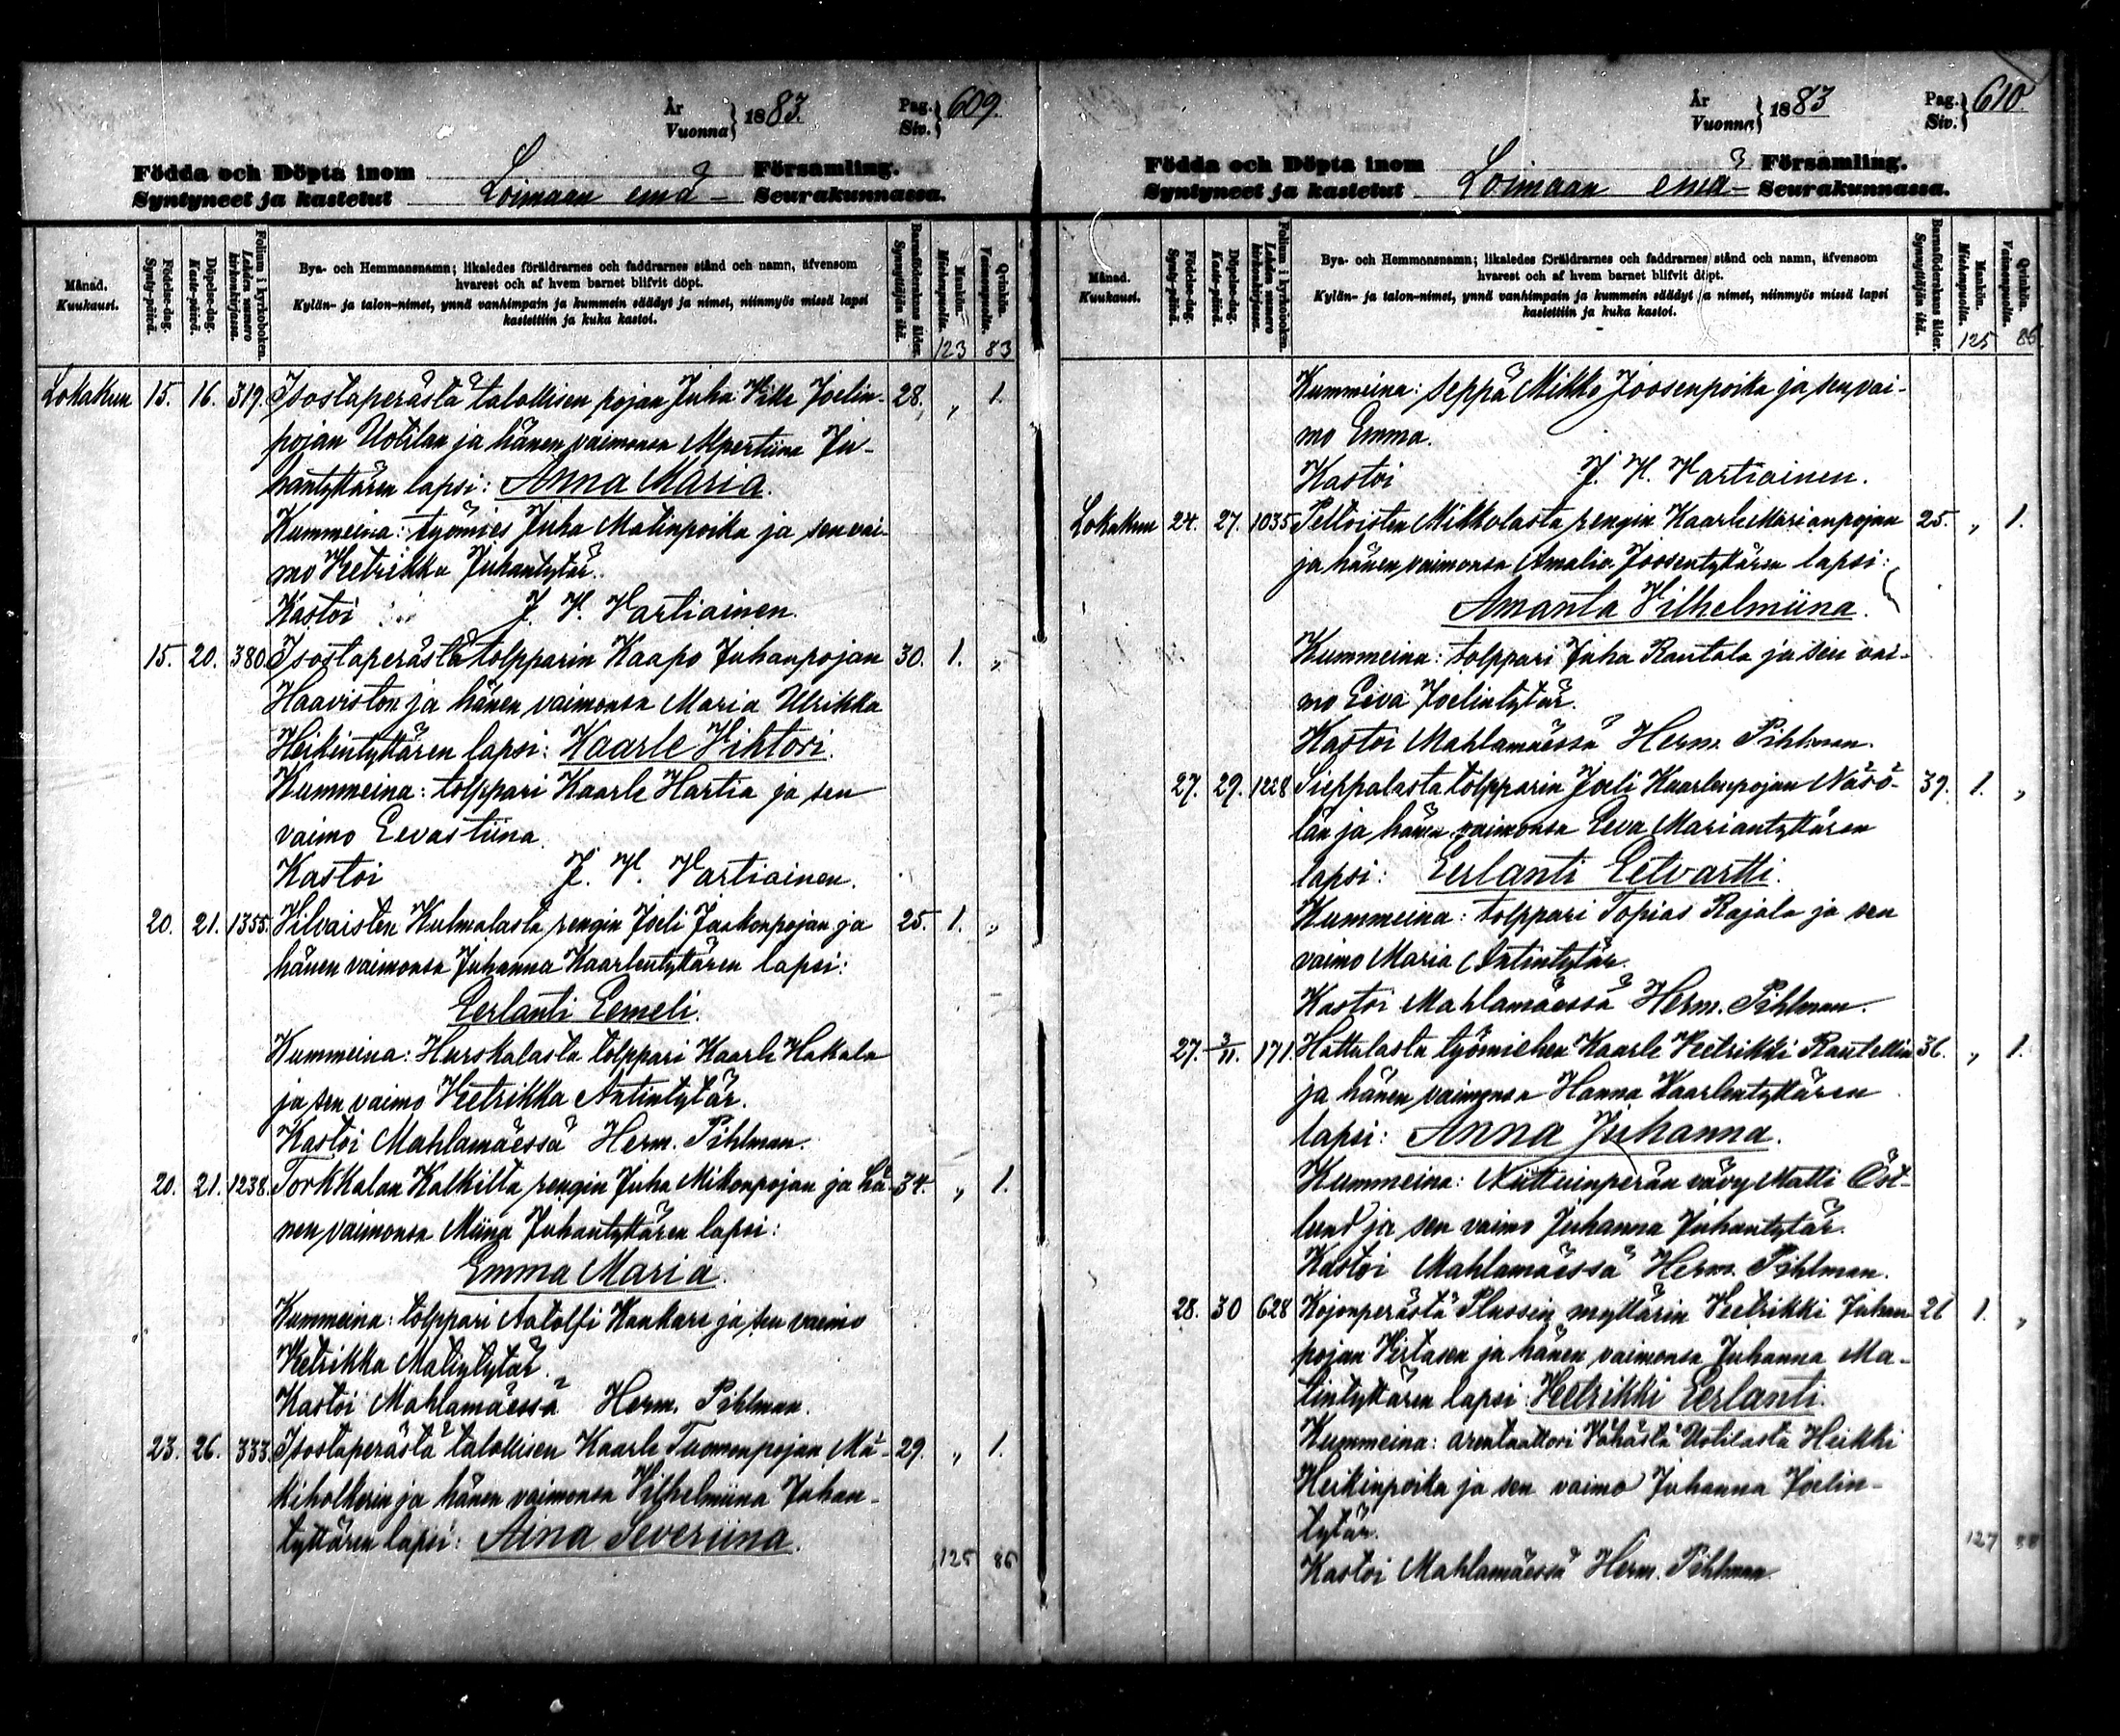 År
Vuonna } 1883.
Pag.
Siv. } 609.
Födda och Döpta inom Församling.
Syntyneet ja kastetut Loimaan emä- Seurakunnassa.
Månad.
Kuukausi.
Födelse-dag.
Synty-päivä.
Döpelse-dag.
Kaste-päivä.
Folium i kyrkoboken.
Lehden numero kirkonkirjassa.
Bya- och Hemmansnamn; likaledes föräldrarnes och faddrarnes stånd och namn, äfvensom
hvarest och af hvem barnet blifvit döpt.
Kylän- ja talon-nimet, ynnä vanhimpain ja kummein säädyt ja nimet, niinmyös missä lapsi
kastettiin ja kuka kastoi.
Barnaföderskans ålder.
Synnyttäjän ikä.
Mankön.
Miehenpuolia.
Qvinkön.
Vaimonpuolia.
123 83
Lokakuu 15. 16. 319. Isostaperästä talollisen pojan Juha Ville Joelin- 28. „ 1.
pojan Uotilan ja hänen vaimonsa Alpertiina Ju-
hantyttären lapsi: Anna Maria.
Kummeina: työmies Juha Matinpoika ja sen vai-
mo Heetrikka Juhantytär.
Kastoi J. V. Vartiainen.
15. 20. 380. Isostaperästä tolpparin Kaapo Juhanpojan 30. 1. „
Haaviston ja hänen vaimonsa Maria Ulrikka
Heikintyttären lapsi: Kaarle Vihtori.
Kummeina: tolppari Kaarle Hartia ja sen
vaimo Eevastiina.
Kastoi J. V. Vartiainen.
20. 21. 1355. Vilvaisten Kulmalasta rengin Joeli Jaakonpojan ja 25. 1. „
hänen vaimonsa Juhanna Kaarlentyttären lapsi:
Eerlanti Eemeli.
Kummeina: Hurskalasta tolppari Kaarle Hakala
ja sen vaimo Heetrikka Antintytär.
Kastoi Mahlamäessä Herm. Pihlman.
20. 21. 1238. Torkkalan Kalkilta rengin Juha Mikonpojan ja hä- 34. „ 1.
nen vaimonsa Miina Juhantyttären lapsi:
Emma Maria.
Kummeina: tolppari Aatolfi Kankare ja sen vaimo
Heetrikka Matintytär.
Kastoi Mahlamäessä Herm. Pihlman.
23. 26. 333. Isostaperästä talollisen Kaarle Tuomonpojan Mä- 29. „ 1.
kiholkerin ja hänen vaimonsa Vilhelmiina Juhan-
tyttären lapsi: Aina Severiina.
125 85
År
Vuonna } 1883
Pag.
Siv. } 610
Födda och Döpta inom Församling.
Syntyneet ja kastetut Loimaan emä- Seurakunnassa.
Månad.
Kuukausi.
Födelse-dag.
Synty-päivä.
Döpelse-dag.
Kaste-päivä.
Folium i kyrkoboken.
Lehden numero kirkonkirjassa.
Bya- och Hemmansnamn; likaledes föräldrarnes och faddrarnes stånd och namn, äfvensom
hvarest och af hvem barnet blifvit döpt.
Kylän- ja talon-nimet, ynnä vanhimpain ja kummein säädyt ja nimet, niinmyös missä lapsi
kastettiin ja kuka kastoi.
Barnaföderskans ålder.
Synnyttäjän ikä.
Mankön.
Miehenpuolia.
Qvinkön.
Vaimonpuolia.
125
Kummeina: seppä Mikko Joosenpoika ja sen vai-
mo Emma.
Kastoi J. V. Vartiainen.
Lokakuu 24. 27. 1035 Peltoisten Mikkolasta rengin Kaarle Marianpojan 25. „ 1.
ja hänen vaimonsa Amalia Joosentyttären lapsi:
Amanta Vilhelmiina.
Kummeina: tolppari Juha Rautala ja sen vai-
mo Eeva Joelintytär.
Kastoi Mahlamäessä Herm. Pihlman.
27. 29. 1228 Sieppalasta tolpparin Joeli Kaarlenpojan Näsö- 39. 1. „
län ja hänen vaimonsa Eeva Mariantyttären
lapsi: Eerlanti Eetvartti.
Kummeina: tolppari Topias Rajala ja sen
vaimo Maria Antintytär.
Kastoi Mahlamäessä Herm. Pihlman.
27. 3/11. 171. Hattalasta työmiehen Kaarle Heetrikki Rautellin 36. „ 1.
ja hänen vaimonsa Hanna Kaarlentyttären
lapsi: Anna Juhanna.
Kummeina: Niittuinperän vävy Matti Öst-
lund ja sen vaimo Juhanna Juhantytär.
Kastoi Mahlamäessä Herm. Pihlman.
28. 30 628 Kojonperästä Plassin myttärin Heetrikki Juhan- 26 1. „
pojan Virtasen ja hänen vaimonsa Juhanna Ma-
tintyttären lapsi: Heetrikki Eerlanti.
Kummeina: arentaattori Vähästä Uotilasta Heikki
Heikinpoika ja sen vaimo Juhanna Joelin-
tytär.
Kastoi Mahlamäessä Herm. Pihlman
127 88